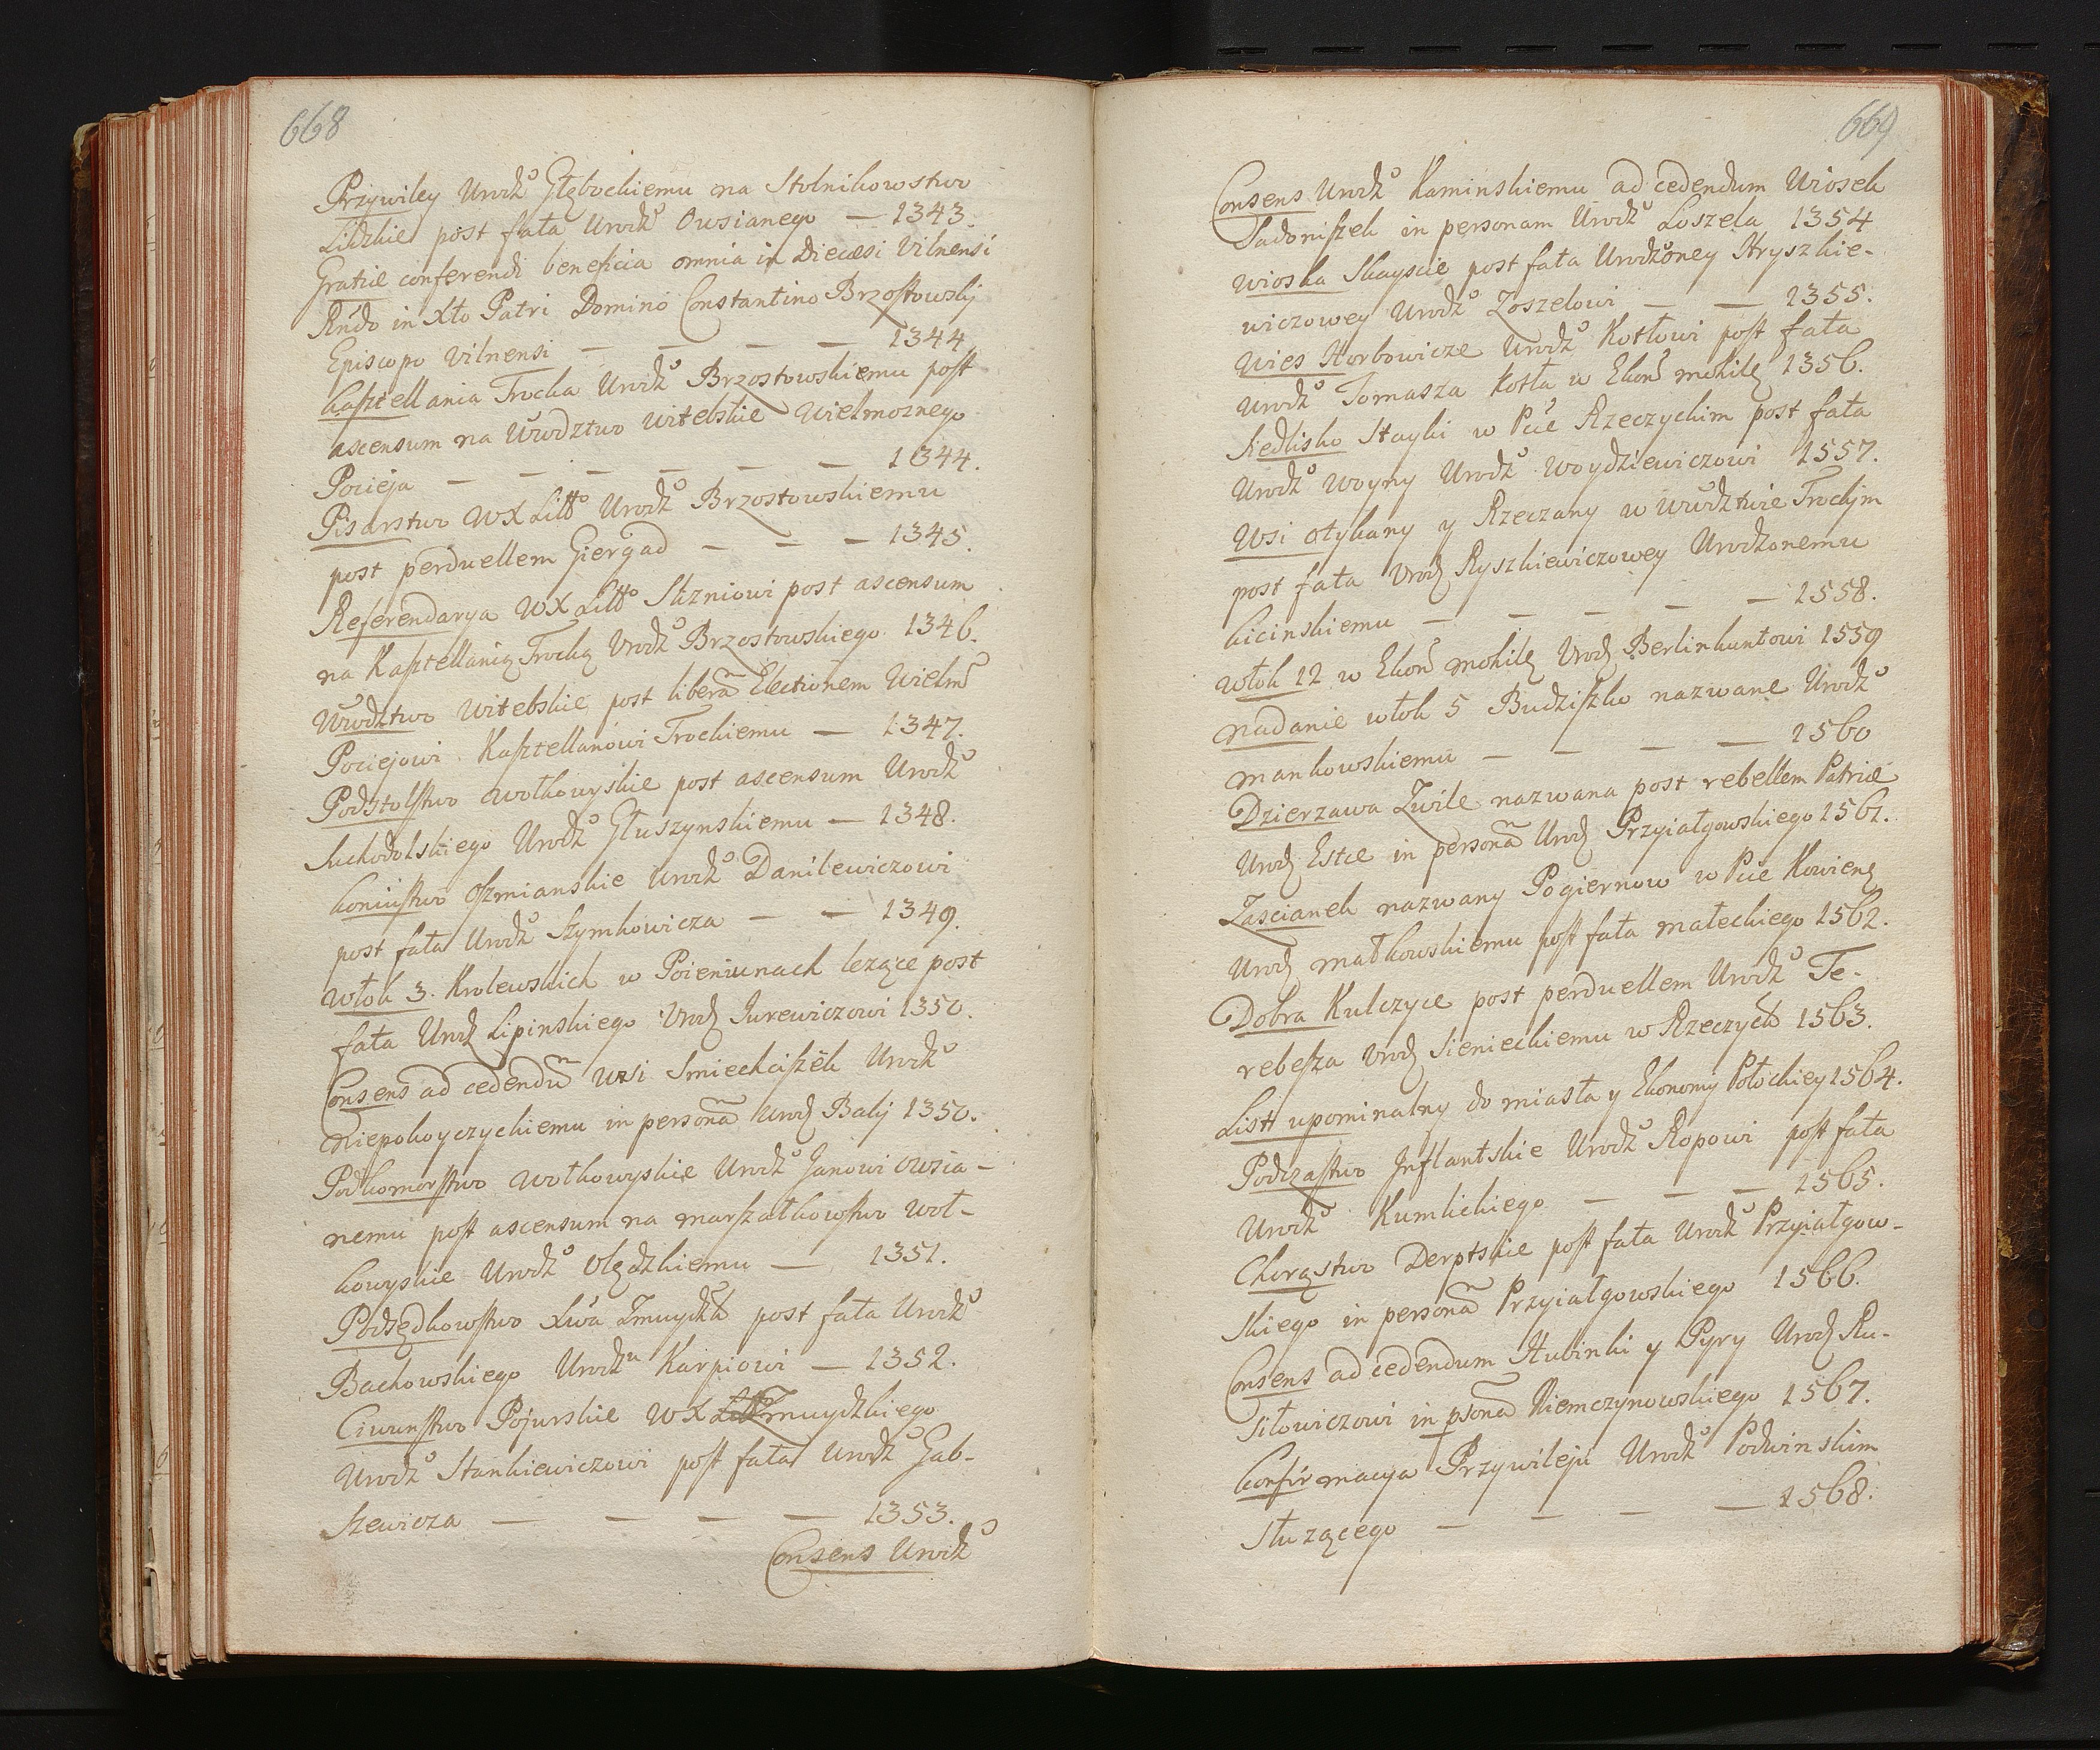 668
Przywiley Urodz° Głębockiemu na Stolnikowstwo
Lidzkie post fata Urodz° Owsianego — 1343.
Gratiæ conferendi beneficia omnia in Diecæsi Vilnensi
Rndo in Xto Patri Domino Constantino Brzostowskj
Episcopo Vilnensi — — — — 1344
Kasztellania Trocka Urodz° Brzostowskiemu post
ascensum na Wwdztwo Witebskie Wielmoznego
Pocieja — — — — — 1344.
Pisarstwo WXLitto Urodz° Brzostowskiemu
post perduellem Giergad — — — 1345.
Referendarya WXLitto Slizniowi post ascensum
na Kasztellanią Trocką Urodz° Brzostowskiego 1346.
Wwdztwo Witebskie post liberã Electionem Wielm
Pociejowi Kasztellanowi Trockiemu — 1347.
Podstolstwo Wołkowyskie post ascensum Urodz°
Suchodolskiego Urodz° Głuszynskiemu — 1348.
Koniustwo Oszmianskie Urodz° Danilewiczowi
post fata Urodz° Szymkowicza — — 1349.
Włok 3. Krolewskich w Poieniunach lezące post
fata Urodz Lipinskiego Urodz Jurewiczowi 1350.
Consens ad cedendũ Wsi Smieckiszek Urodz°
Niepokoyczyckiemu in personã Urodz Balij 1350.
Podkomorstwo Wołkowyskie Urodz° Janowi Owsia-
nemu post ascensum na marszałkowstwo Woł-
kowyskie Urodz° Olędzkiemu — 1351.
Podsędkowstwo Xwa Zmuydzk post fata Urodz°
Backowskiego Urodzu Karpiowi — 1352.
Ciwunstwo Pojurskie WX Zmuydzkiego
Urodz° Stankiewiczowi post fata Urodz° Gab-
szewicza — — — — 1353.
Consens Urodz°
669
Consens Urodz° Kaminskiemu ad cedendum Wiosek
Sadoniszek in personam Urodz° Loszela 1354
Wioska Skayscie post fata Urodzoney Hryszkie-
wiczowey Urodz° Zoszelowi — — 1355.
Wies Horbowicze Urodz° Kotłowi post fata
Urodz° Tomasza Kotła w Ekon mohilę 1356.
Siedlisko Stayki w Pcie Rzeczyckim post fata
Urodz° Woyny Urodz° Woydziewiczowi 1557.
Wsi Otykany y Rzeczany w Wwdztwie Trockjm
post fata Urodz Ryszkiewiczowey Urodzonemu
Kicinskiemu — — — — — 1558.
Włok 12 w Ekon mohilę Urodz Berlinkuntowi 1559
Nadanie włok 5 Budziszko nazwane Urodz°
Mankowskiemu — — — — 1560
Dzierzawa Zwile nazwana post rebellem Patriæ
Urodz Estce in personã Urodz Przyiałgowskiego 1561.
Zascianek nazwany Pogiernow w Pcie Kowienę
Urodz Małkowskiemu post fata małeckiego 1562.
Dobra Kulczyce post perduellem Urodz° Te-
rebesza Urodz Sienieckiemu w Rzeczyck 1563.
List upominalny do miasta y Ekonomij Połockiey 1564.
Podczastwo Inflantskie Urodz° Ropowi post fata
Urodz° Kumlickiego — — — 1565.
Chorąstwo Derptskie post fata Urodz° Przyiałgow-
skiego in personã Przyiałgowskiego 1566.
Consens ad cedendum Hubinki y Pyry Urodz Ru-
siłowiczowi in psonã Niemczynowskiego 1567.
Konfirmacya Przywileju Urodz° Podwinskim
Słuzącego — — — — 1568.